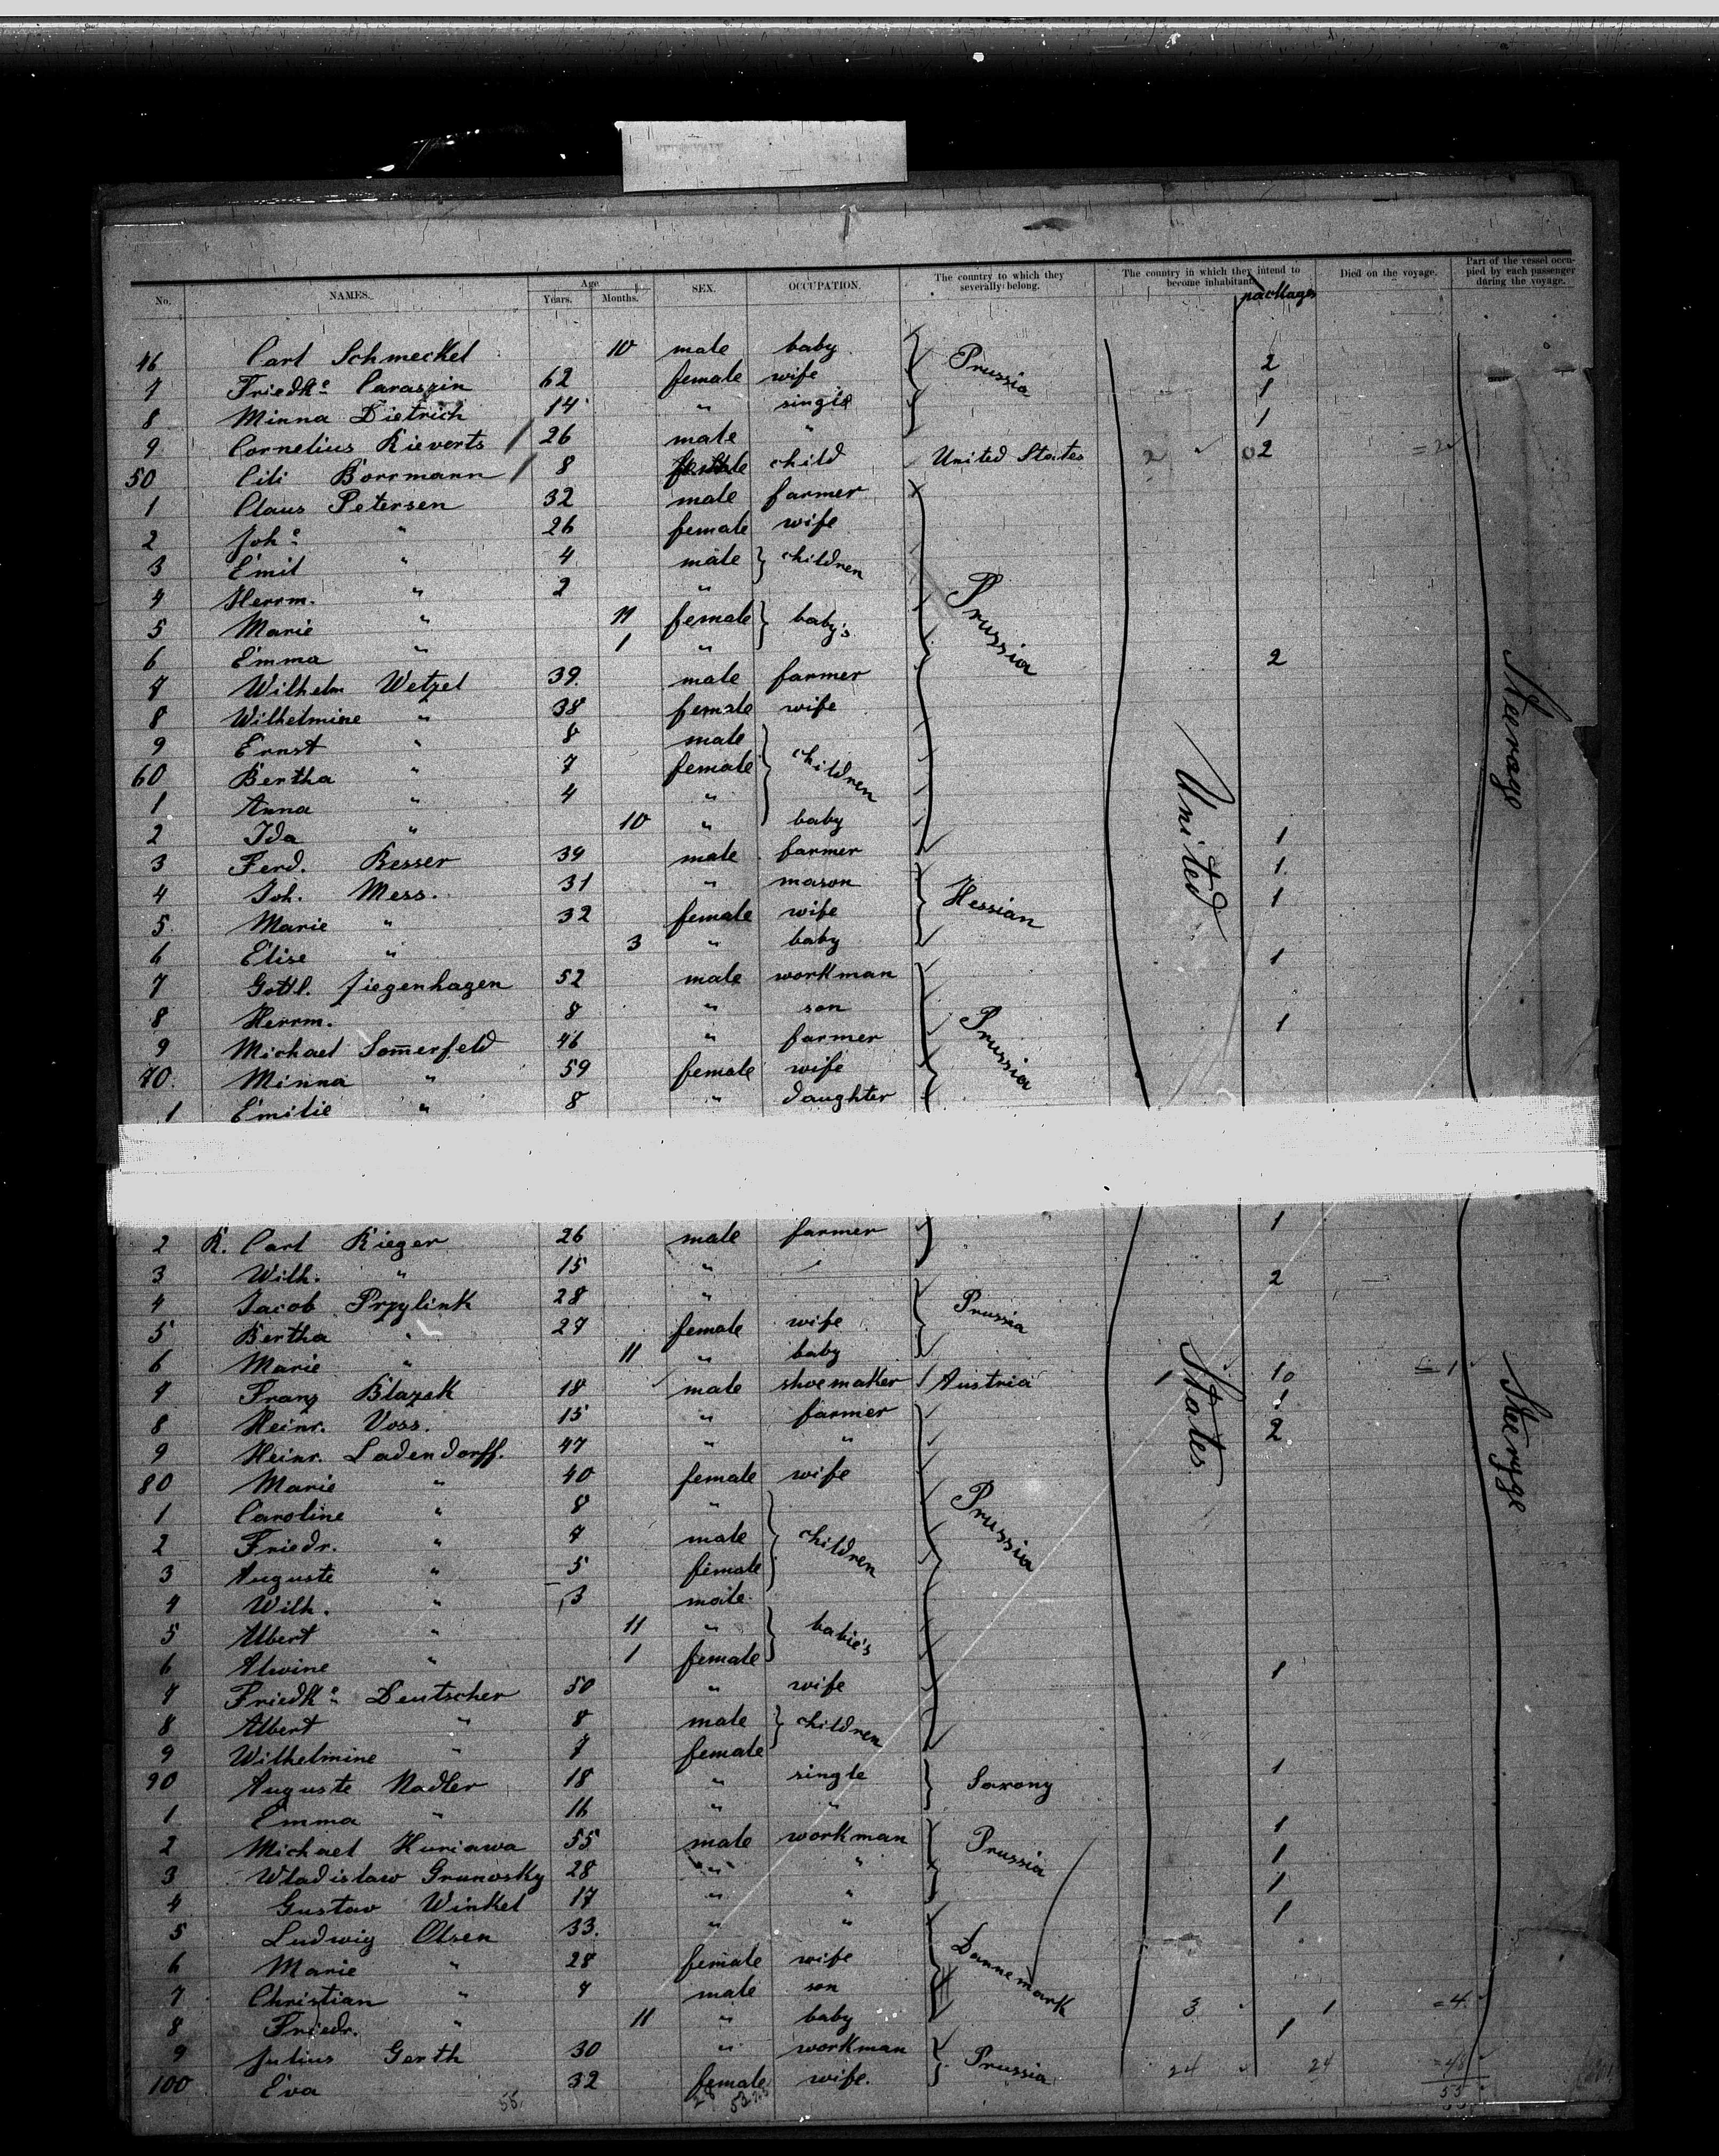 No. NAMES. Age Years. Months. SEX. OCCUPATION. The country to which they severally belong. The country in which they intend to become inhabitants packages Died on the voyage. Part of the vessel occupied by each passenger during the voyage.
46 Carl Schmeckel 10 male baby Prussia 2
7 Friedke Caraszin 62 female wife 1
8 Minna Dietrich 14 " single 1
9 Cornelius Rieverts 26 male " United States 2 02 =2
50 Cili Borrmann 8 female child
1 Claus Petersen 32 male farmer
2 Johe " 26 female wife
3 Emil " 4 male children
4 Herrm. " 2 " Prussia
5 Marie " 11 female baby's
6 Emma " 1 " 2
7 Wilhelm Wetzel 39 male farmer Steerage
8 Wilhelmine " 38 female wife
9 Ernst " 8 male children
60 Bertha " 7 female United
1 Anna " 4 "
2 Ida " 10 " baby 1
3 Ferd. Besser 39 male farmer 1
4 Joh. Mess. 31 " mason Hessian 1
5 Marie " 32 female wife
6 Elise " 3 " baby 1
7 Gottl. Ziegenhagen 52 male workman
8 Herrm. 8 " son Prussia 1
9 Michael Somerfeld 46 " farmer
70. Minna " 59 female wife
1 Emilie " 8 " daughter
2 R. Carl Rieger 26 male farmer 1
3 Wilh. " 15 " 2
4 Jacob Przylink 28 " Prussia
5 Bertha " 27 female wife
6 Marie " 11 " baby 10 1
7 Franz Blazek 18 male shoemaker Austria 1 1 States Steerage
8 Heinr. Voss. 15 " farmer 2
9 Heinr. Ladendorff. 47 " "
80 Marie " 40 female wife Prussia
1 Caroline " 8 " children
2 Friedr. " 7 male
3 Auguste " 5 female
4 Wilh. " 3 male
5 Albert " 11 " babie's
6 Alwine " 1 female 1
7 Friedke Deutscher 50 " wife
8 Albert " 8 male children
9 Wilhelmine " 7 female 1
90 Auguste Nadler 18 " single Saxony
1 Emma " 16 " " 1
2 Michael Kuriawa 55 male workman Prussia 1
3 Wladislaw Grunosky 28 " " 1
4 Gustav Winkel 17 " " 1
5 Ludwig Olsen 33. " " Dannemark
6 Marie " 28 female wife
7 Christian " 7 male son 3 1 =4
8 Friedr. " 11 " baby 1
9 Julius Gerth 30 " workman Prussia 24 24 =48
100 Eva 32 female wife. 55
55